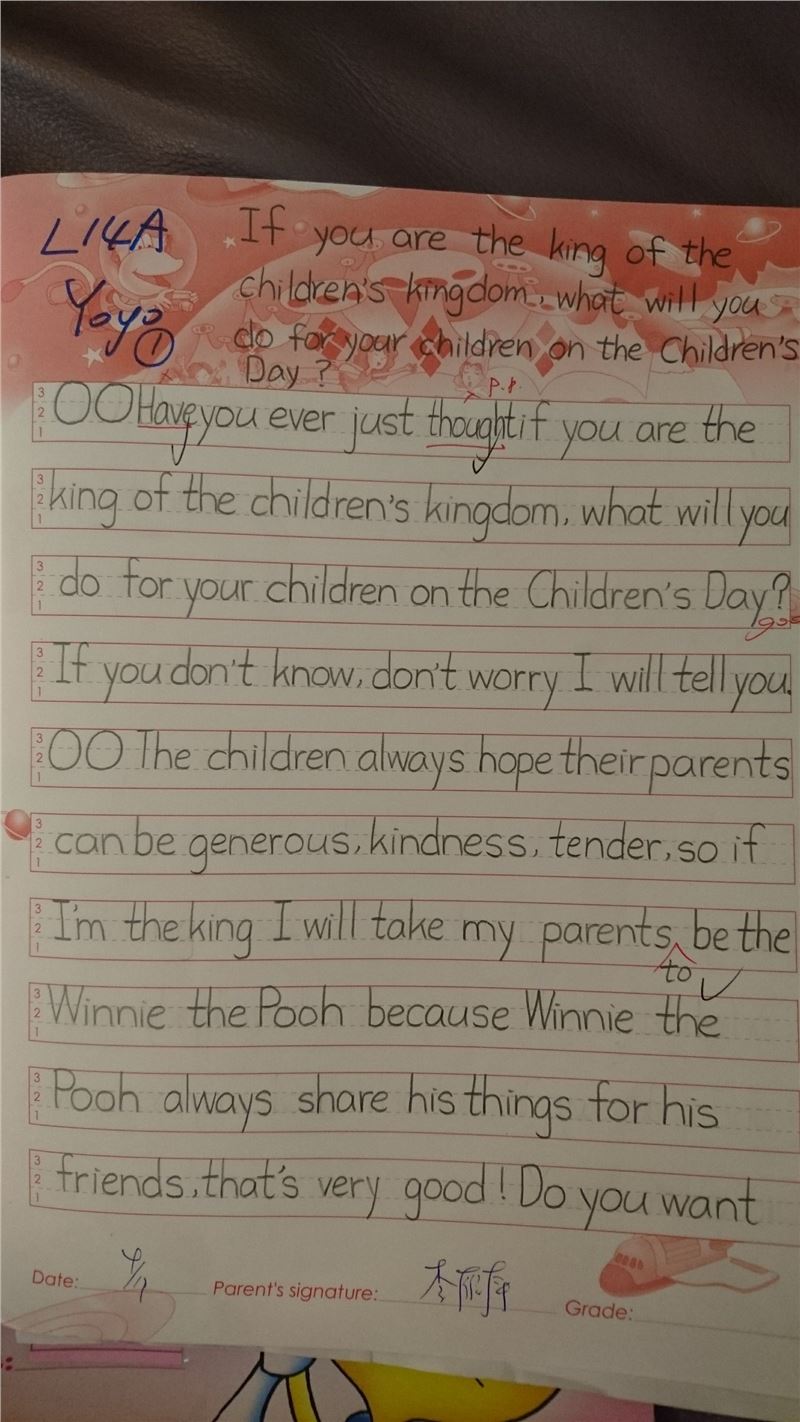 L14A
Yoyo
①
If you are the king of the
children's kingdom, what will you
do for your children on the Children's
Day ?
p.p.
3 2 1 OO Have you ever just thought if you are the
3 2 1 king of the children's kingdom, what will you
3 2 1 do for your children on the Children's Day?
3 2 1 If you don't know, don't worry I will tell you.
3 2 1 OO The children always hope their parents
3 2 1 can be generous, kindness, tender, so if
3 2 1 I'm the king I will take my parents be the
to
3 2 1 Winnie the Pooh because Winnie the
3 2 1 Pooh always share his things for his
3 2 1 friends, that's very good! Do you want
Date: 4/1 Parent's signature: Grade: